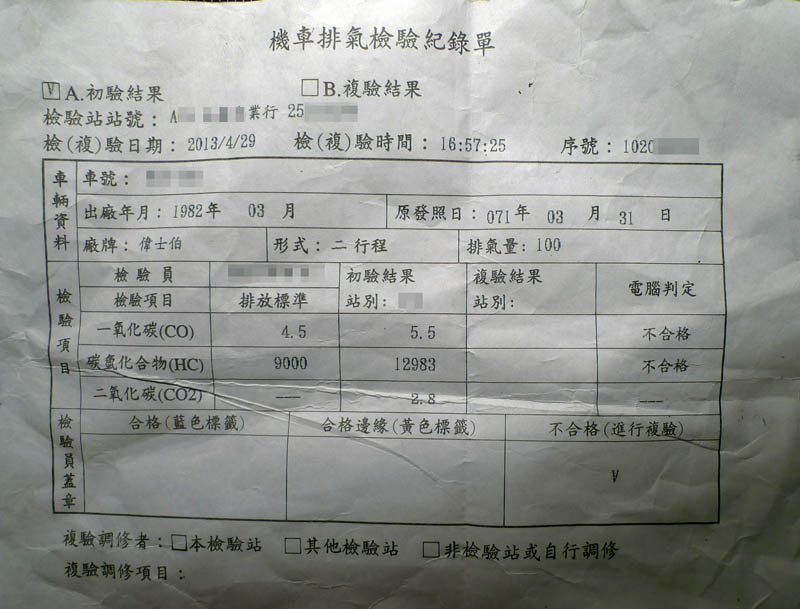 機車排氣檢驗紀錄單
V A.初驗結果 □B.複驗結果
檢驗站站號：A 業行 25
檢(複)驗日期：2013/4/29 檢(複)驗時間：16:57:25 序號：1020
車輛資料
車號：
出廠年月：1982年 03 月 原發照日：071年 03 月 31 日
廠牌：偉士伯 形式：二行程 排氣量：100
檢驗項目
檢驗員 初驗結果 複驗結果 電腦判定
檢驗項目 排放標準 站別： 站別：
一氧化碳(CO) 4.5 5.5 不合格
碳氫化合物(HC) 9000 12983 不合格
二氧化碳(CO2) --- 2.8 ---
檢驗員蓋章
合格(藍色標籤) 合格邊緣(黃色標籤) 不合格(進行複驗)
V
複驗調修者：□本檢驗站 □其他檢驗站 □非檢驗站或自行調修
複驗調修項目：